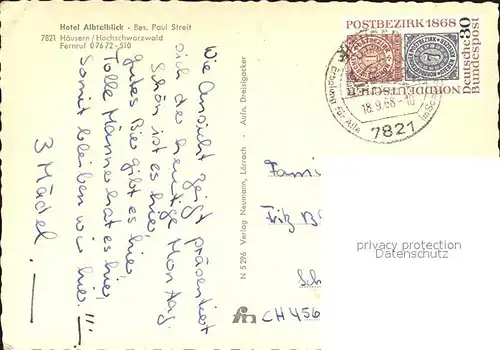 Hotel Albtalblick - Bes. Paul Streit
7821 Häusern / Hochschwarzwald
Fernruf 07672-510
Wie Ansicht zeigt, präsentiert
sich der heutige Montag.
Schön ist es hier,
gutes Bier gibt es hier,
Tolle Männer hat es hier,
Somit bleiben wir hier. !!!
3 Mädel.
N 5296 Verlag Neumann, Lörrach - Aufn. Dreisigacker
POSTBEZIRK 1868
NORDDEUTSCHER
Deutsche Bundespost 30
Erholung für Alle
18.9.68-10
7821
Fritz
CH 456
privacy protection
Datenschutz